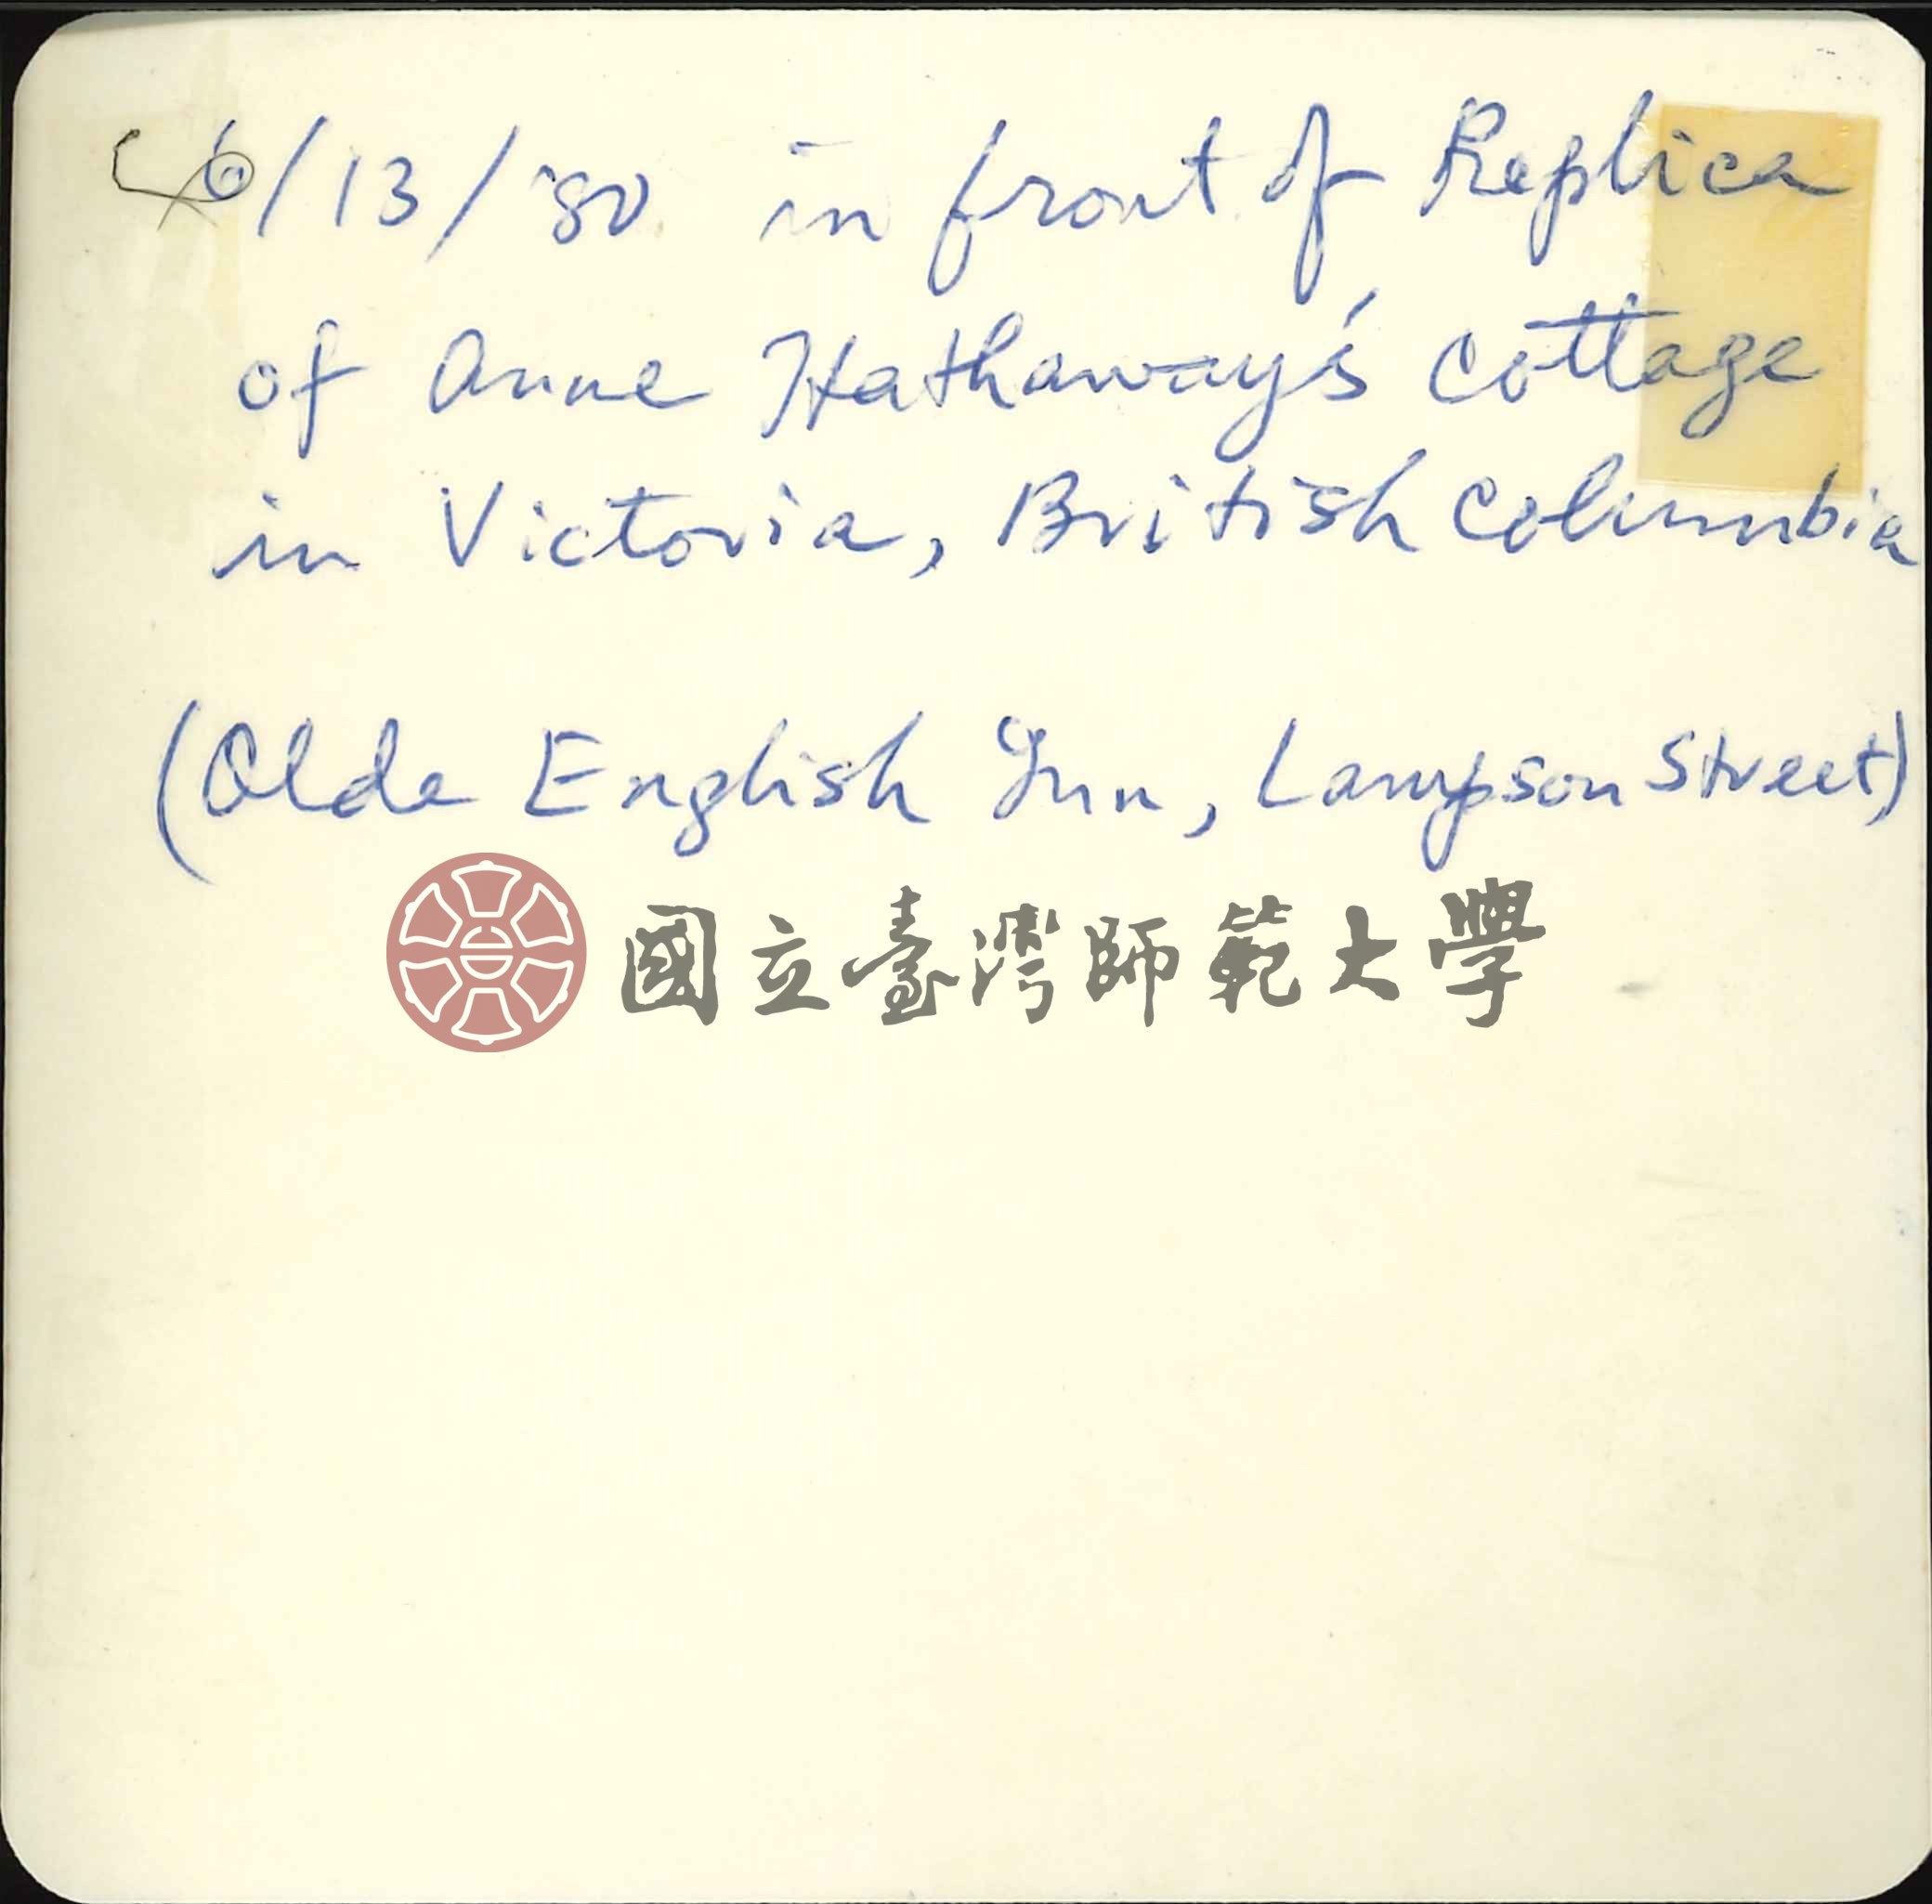 6/13/'80 in front of Replica
of Anne Hathaway's cottage
in Victoria, British Columbia
(Olde English Inn, Lampson Street)
國立臺灣師範大學